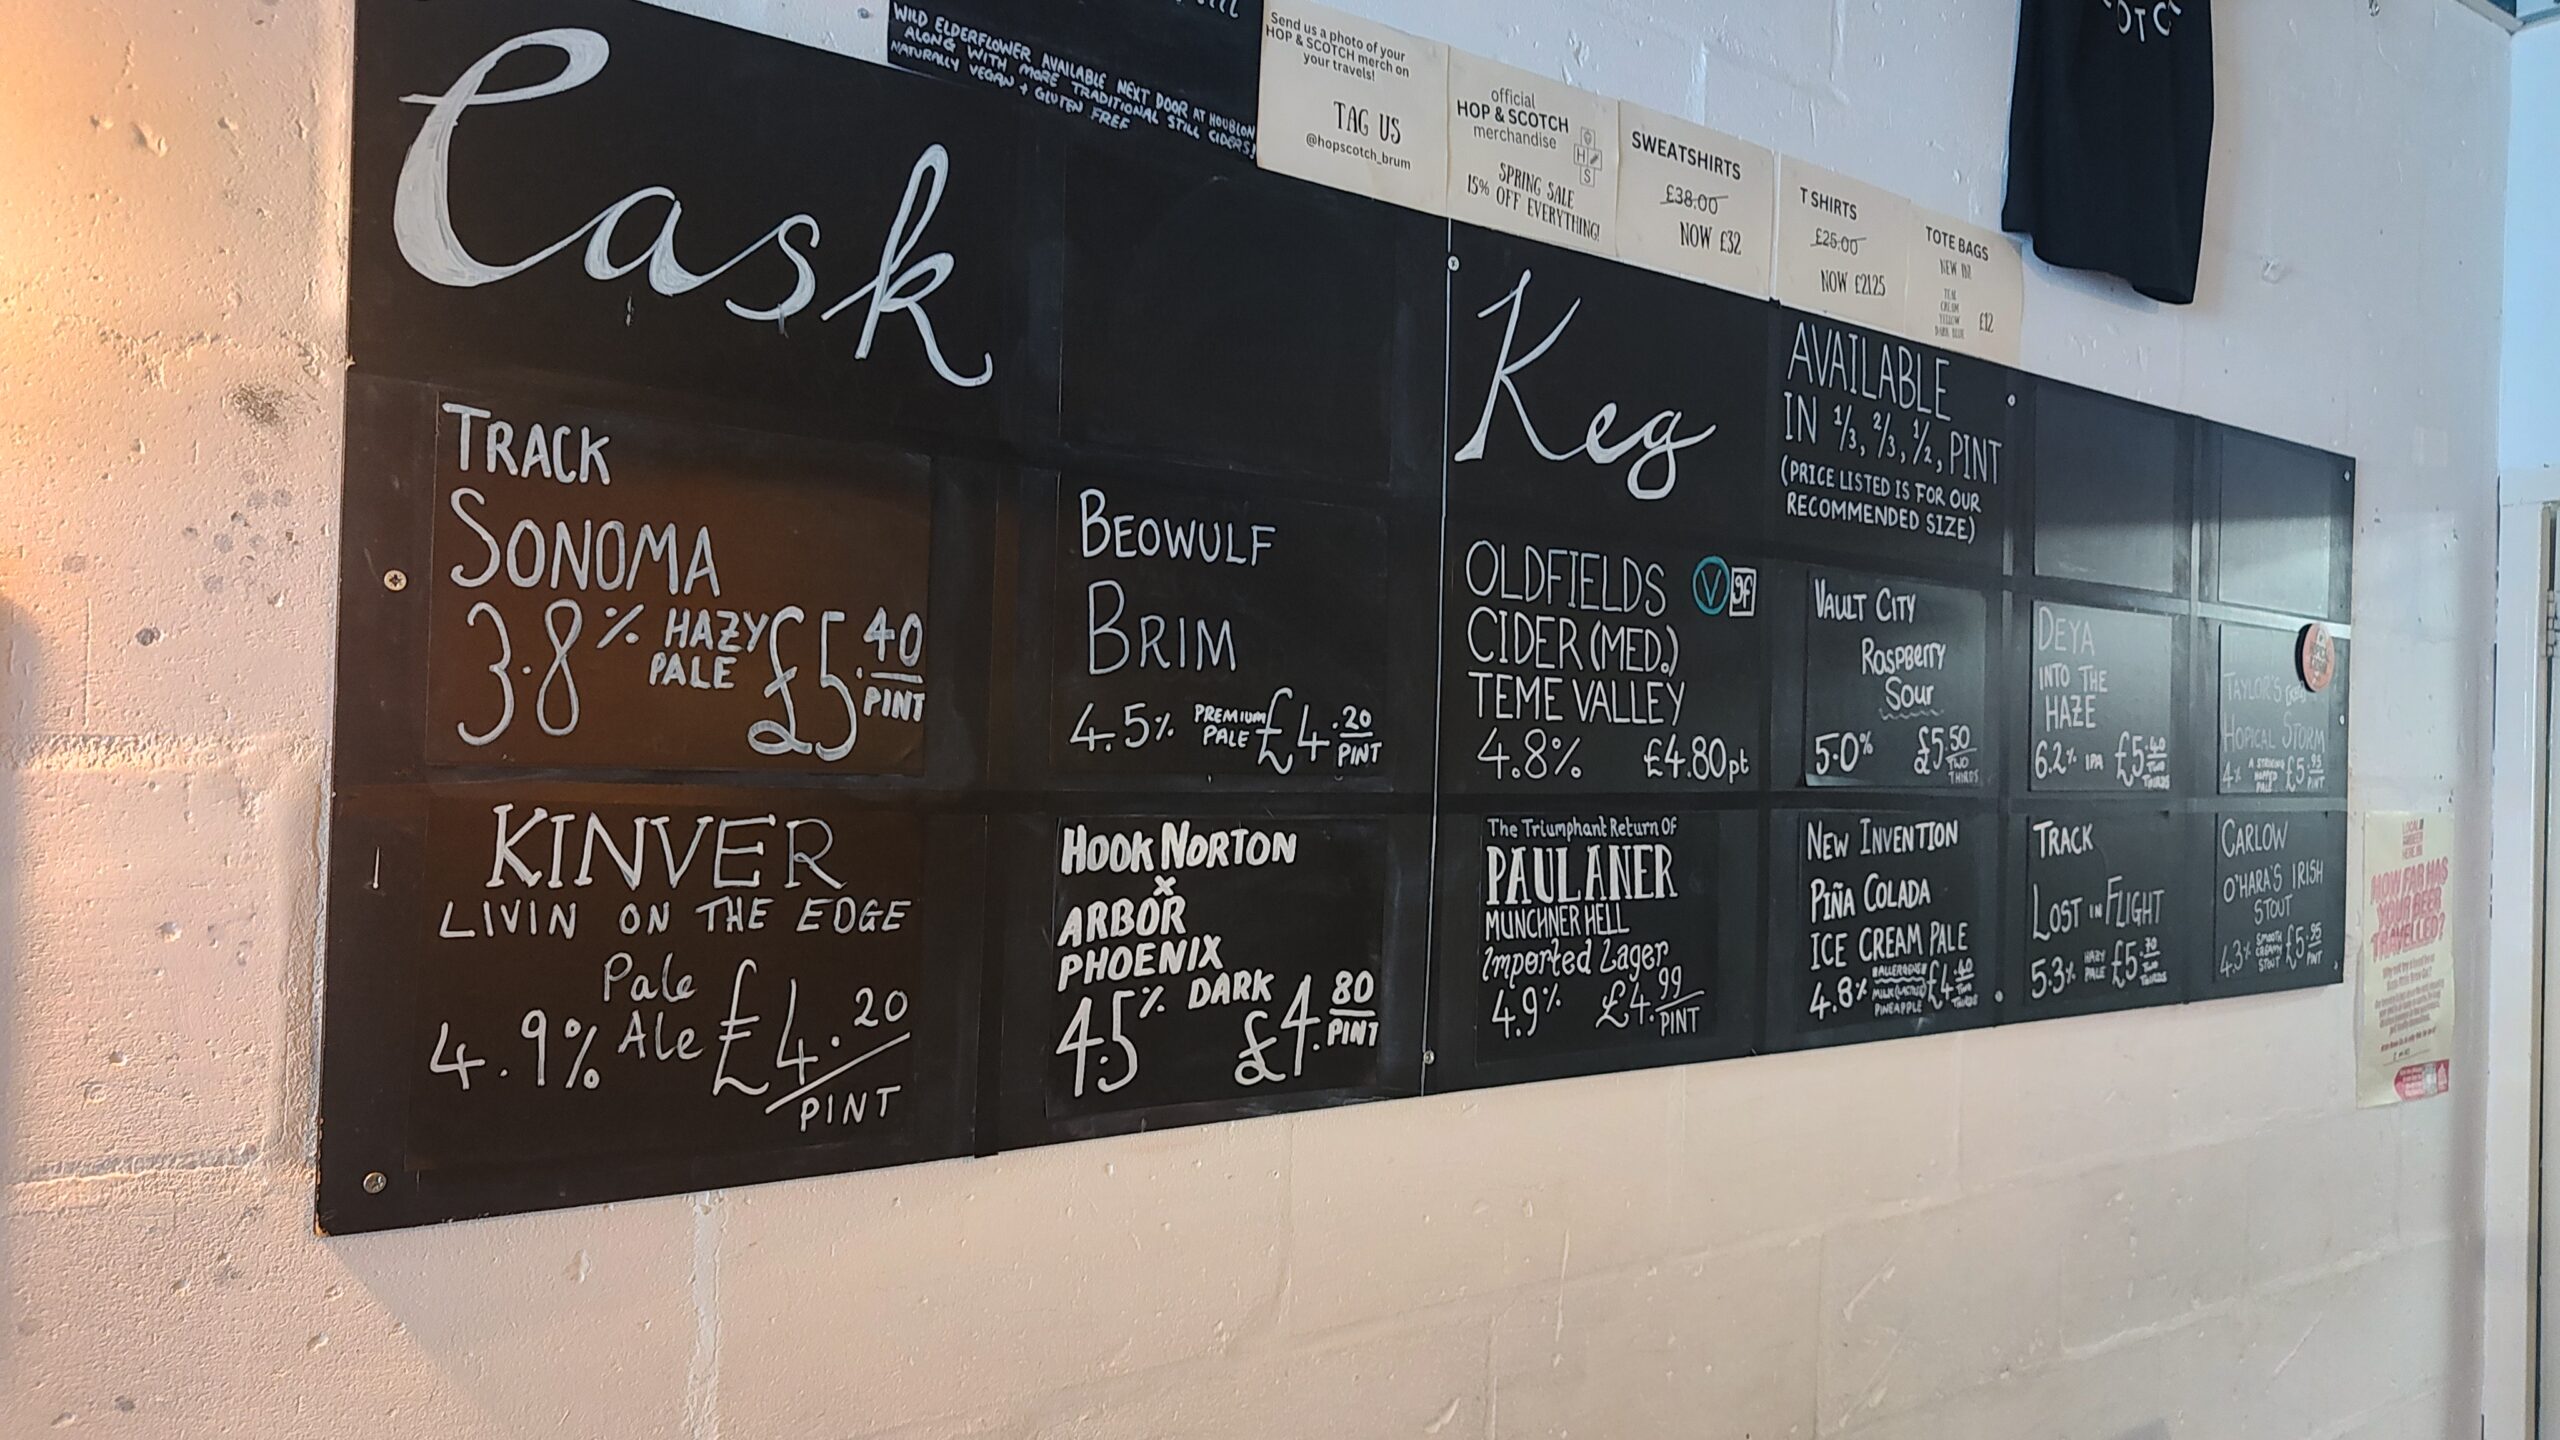 WILD ELDERFLOWER AVAILABLE NEXT DOOR AT HOUBLON
ALONG WITH MORE TRADITIONAL STILL CIDERS!
NATURALLY VEGAN + GLUTEN FREE
Send us a photo of your
HOP & SCOTCH merch on
your travels!
TAG US
@hopscotch_brum
official
HOP & SCOTCH
merchandise
H
S
SPRING SALE
15% OFF EVERYTHING!
SWEATSHIRTS
£38.00
NOW £32
T SHIRTS
£25.00
NOW £21.25
TOTE BAGS
NEW IN!
TEAL
CREAM
YELLOW
DARK BLUE
£12
Cask
TRACK
SONOMA
3.8% HAZY PALE £5.40 PINT
BEOWULF
BRIM
4.5% PREMIUM PALE £4.20 PINT
KINVER
LIVIN ON THE EDGE
Pale
4.9% Ale £4.20
PINT
HOOK NORTON
x
ARBOR
PHOENIX
4.5% DARK £4.80 PINT
Keg
AVAILABLE
IN 1/3, 2/3, 1/2, PINT
(PRICE LISTED IS FOR OUR
RECOMMENDED SIZE)
OLDFIELDS V gf
CIDER (MED.)
TEME VALLEY
4.8% £4.80pt
VAULT CITY
RASPBERRY
SOUR
5.0% £5.50 TWO THIRDS
DEYA
INTO THE
HAZE
6.2% IPA £5.40 TWO THIRDS
TAYLOR'S
HOPICAL STORM
4% A STRIKING HOPPED PALE £5.95 PINT
The Triumphant Return Of
PAULANER
MUNCHNER HELL
Imported Lager
4.9% £4.99 PINT
NEW INVENTION
PIÑA COLADA
ICE CREAM PALE
4.8% *ALLERGENS* MILK (LACTOSE) PINEAPPLE £4.40 TWO THIRDS
TRACK
LOST IN FLIGHT
5.3% HAZY PALE £5.70 TWO THIRDS
CARLOW
O'HARA'S IRISH
STOUT
4.3% SMOOTH CREAMY STOUT £5.95 PINT
HOW FAR HAS
YOUR BEER
TRAVELLED?